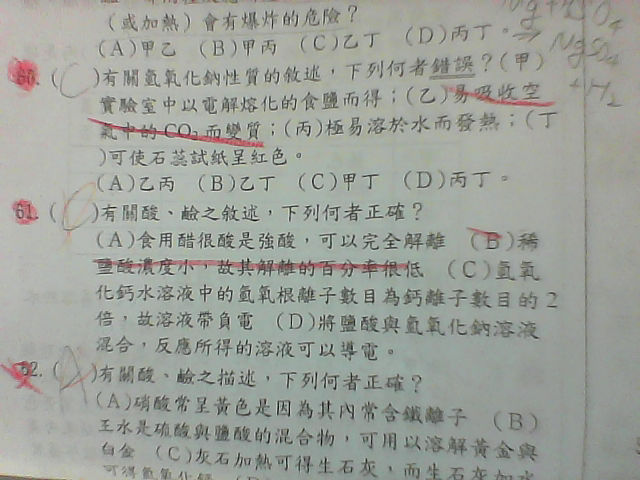 (或加熱)會有爆炸的危險?
(A)甲乙 (B)甲丙 (C)乙丁 (D)丙丁。
60. (C)有關氫氧化鈉性質的敘述,下列何者錯誤?(甲)
實驗室中以電解熔化的食鹽而得;(乙)易吸收空
氣中的CO₂而變質;(丙)極易溶於水而發熱;(丁
)可使石蕊試紙呈紅色。
(A)乙丙 (B)乙丁 (C)甲丁 (D)丙丁。
61. ( )有關酸、鹼之敘述,下列何者正確?
(A)食用醋很酸是強酸,可以完全解離 (B)稀
鹽酸濃度小,故其解離的百分率很低 (C)氫氧
化鈣水溶液中的氫氧根離子數目為鈣離子數目的2
倍,故溶液帶負電 (D)將鹽酸與氫氧化鈉溶液
混合,反應所得的溶液可以導電。
62. (A)有關酸、鹼之描述,下列何者正確?
(A)硝酸常呈黃色是因為其內常含鐵離子 (B)
王水是硫酸與鹽酸的混合物,可用以溶解黃金與
白金 (C)灰石加熱可得生石灰,而生石灰加水
可得氫氧化鈣